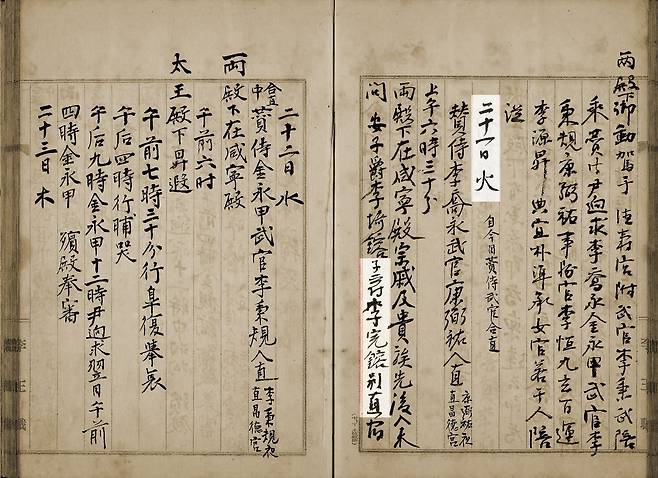 兩殿下御動駕于德壽宮附武官李秉武陪
乘贊侍尹逈求李喬永金永甲武官李
秉規康弼祐事務官李恒九玄百運
李源昇典宜朴準承女官若干人陪
從
二十一日 火 自今日贊侍武官合直
贊侍李喬永武官康弼祐入直 康弼祐夜直昌德宮
上午六時三十分
兩殿下在咸寧殿宗戚及貴族先後入來
問安子爵李埼鎔子爵李完鎔別直宿
二十二日 水
合直中 贊侍金永甲武官李秉規入直 李秉規夜直昌德宮
兩殿下在咸寧殿
午前六時
太王殿下昇遐
午前七時三十分行皐復擧哀
午后四時行晡哭
午后九時金永甲十二時尹逈求翌日午前
四時金永甲 殯殿奉審
二十三日 木
李王職